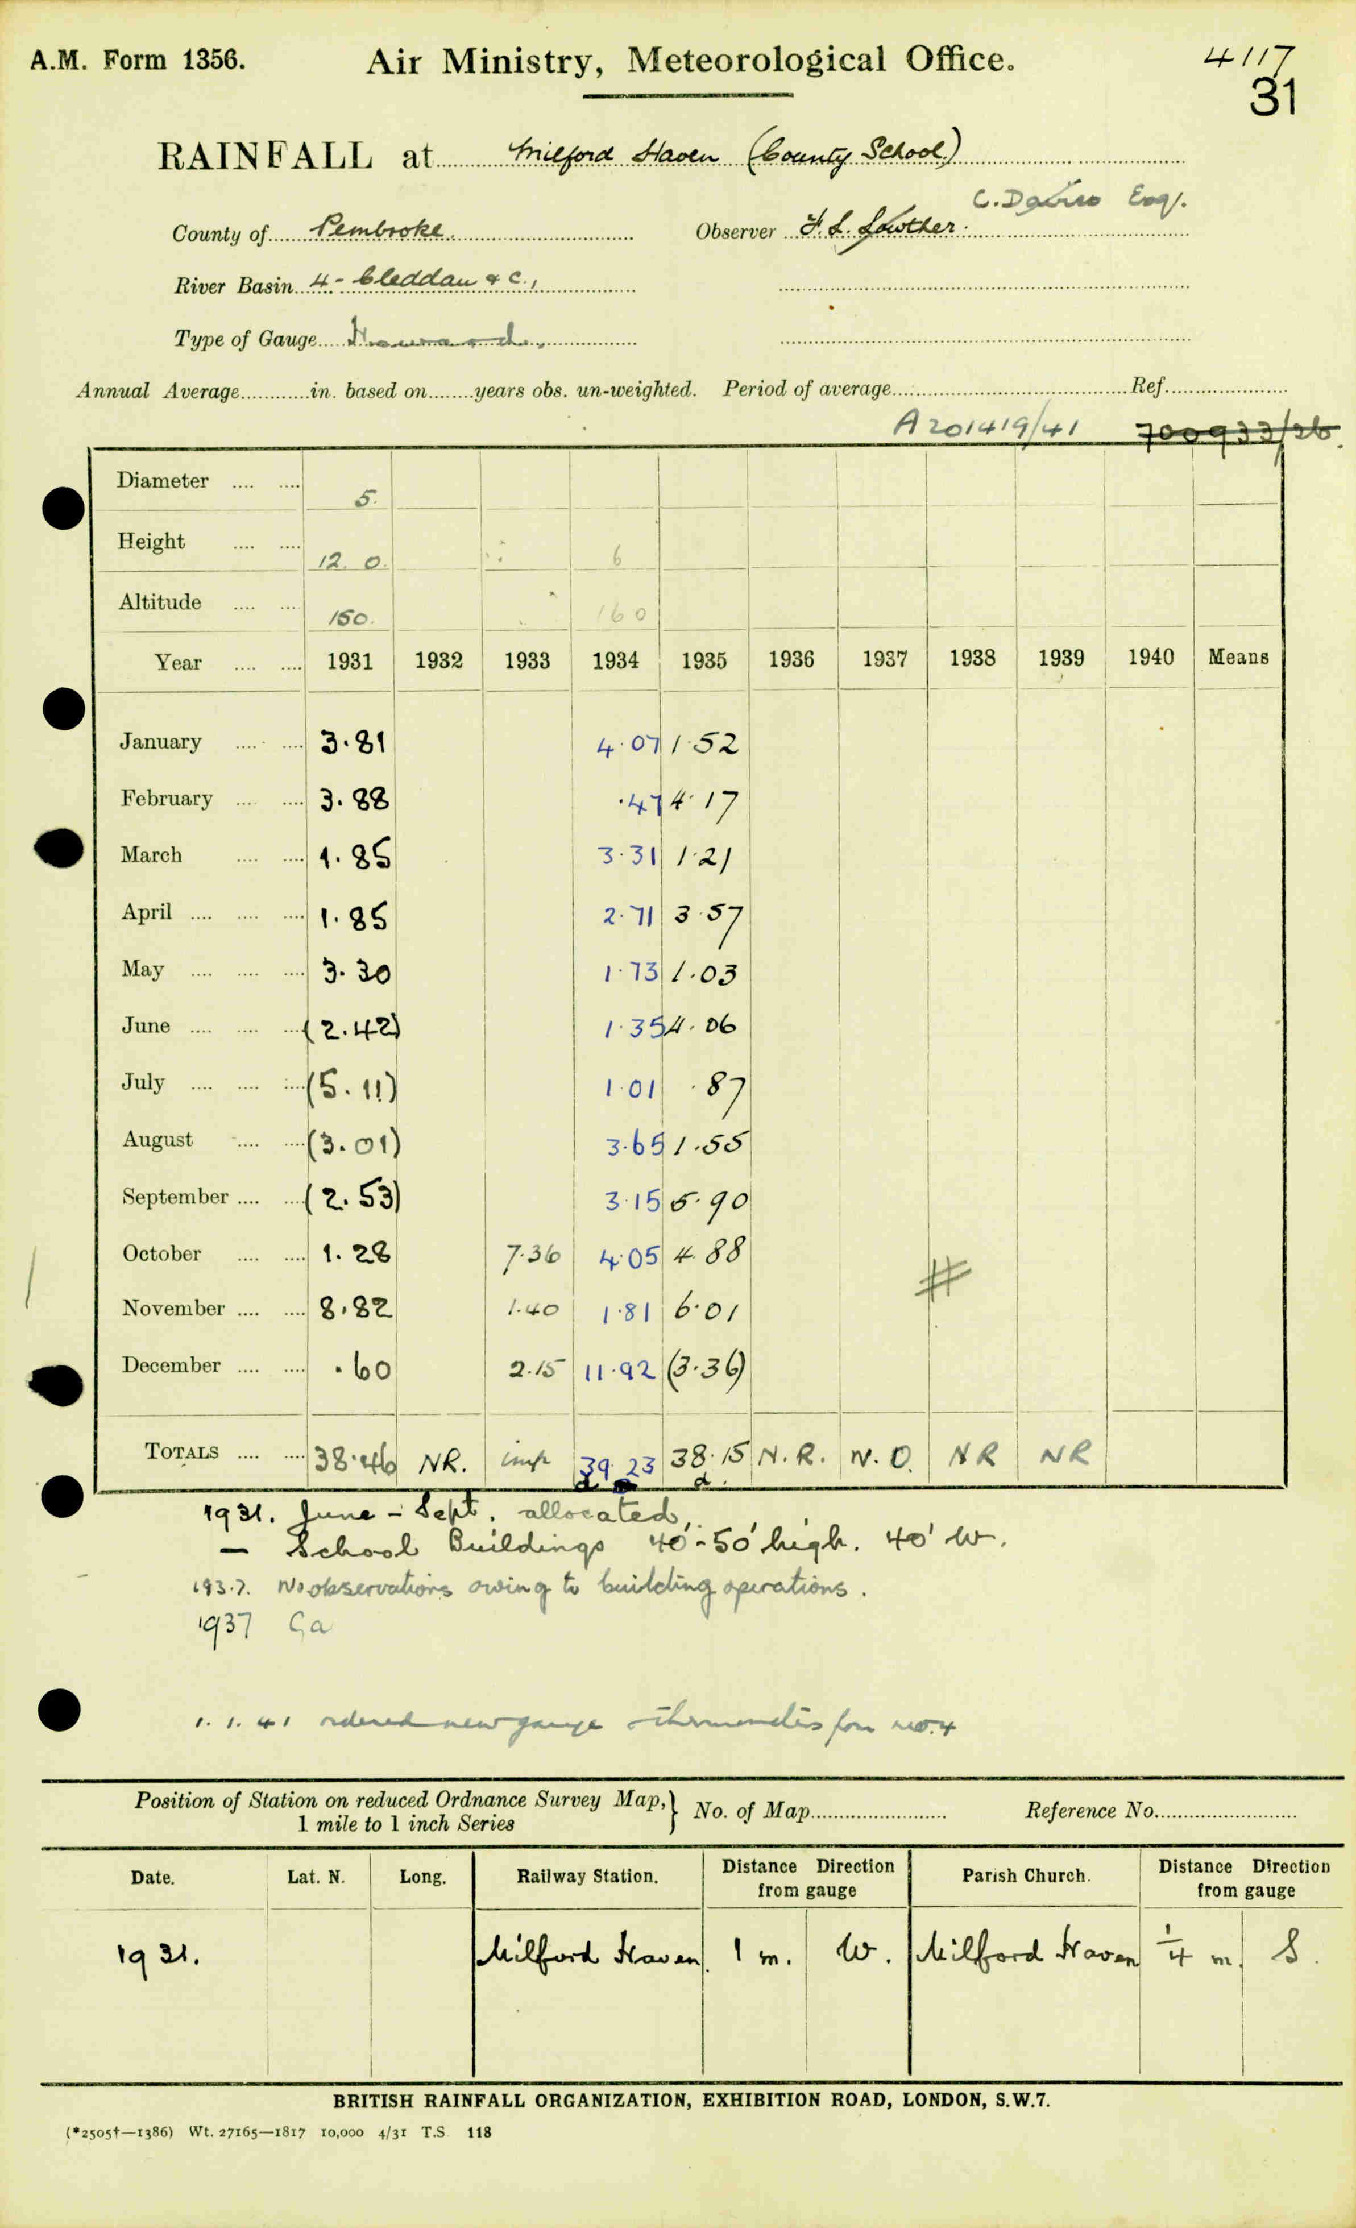 A.M. Form 1356.
Air Ministry, Meteorological Office.
4117
31
RAINFALL at Milford Haven (County School)
C. Davies Esq.
County of Pembroke.
Observer F. L. Lowther.
River Basin 4 - Cleddau & c.,
Type of Gauge Howard.
Annual Average in. based on years obs. un-weighted. Period of average Ref.
A201419/41 700933/26.
Diameter 5.
Height 12 0. 6
Altitude 150. 160
Year 1931 1932 1933 1934 1935 1936 1937 1938 1939 1940 Means
January 3.81 4.07 1.52
February 3.88 .47 4.17
March 1.85 3.31 1.21
April 1.85 2.71 3.57
May 3.30 1.73 1.03
June (2.42) 1.35 4.06
July (5.11) 1.01 .87
August (3.01) 3.65 1.55
September (2.53) 3.15 5.90
October 1.28 7.36 4.05 4.88
November 8.82 1.40 1.81 6.01
December .60 2.15 11.92 (3.36)
TOTALS 38.46 NR. imp 39.23 38.15 N.R. N.O. NR NR
d d.
1931. June - Sept. allocated.
— School Buildings 40'-50' high. 40' W.
193.7. No observations owing to building operations.
1937 Ga
1. 1. 41 ordered new gauge thermometers from
Position of Station on reduced Ordnance Survey Map,} No. of Map Reference No.
1 mile to 1 inch Series
Date. Lat. N. Long. Railway Station. Distance Direction from gauge Parish Church. Distance Direction from gauge
1931. Milford Haven. 1 m. W. Milford Haven 1/4 m. S.
BRITISH RAINFALL ORGANIZATION, EXHIBITION ROAD, LONDON, S.W.7.
(*2505†—1386) Wt. 27165—1817 10,000 4/31 T.S. 118